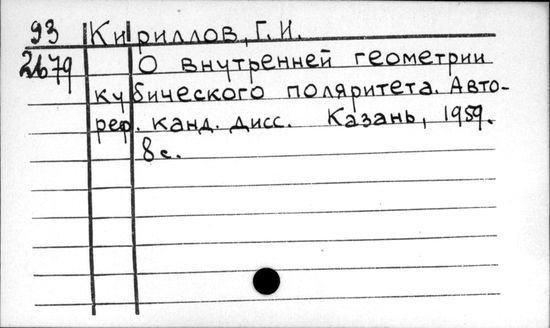 93 Кириллов, Г. И.
2679 О внутренней геометрии
кубического поляритета. Авто-
реф. канд. дисс. Казань, 1959.
8с.